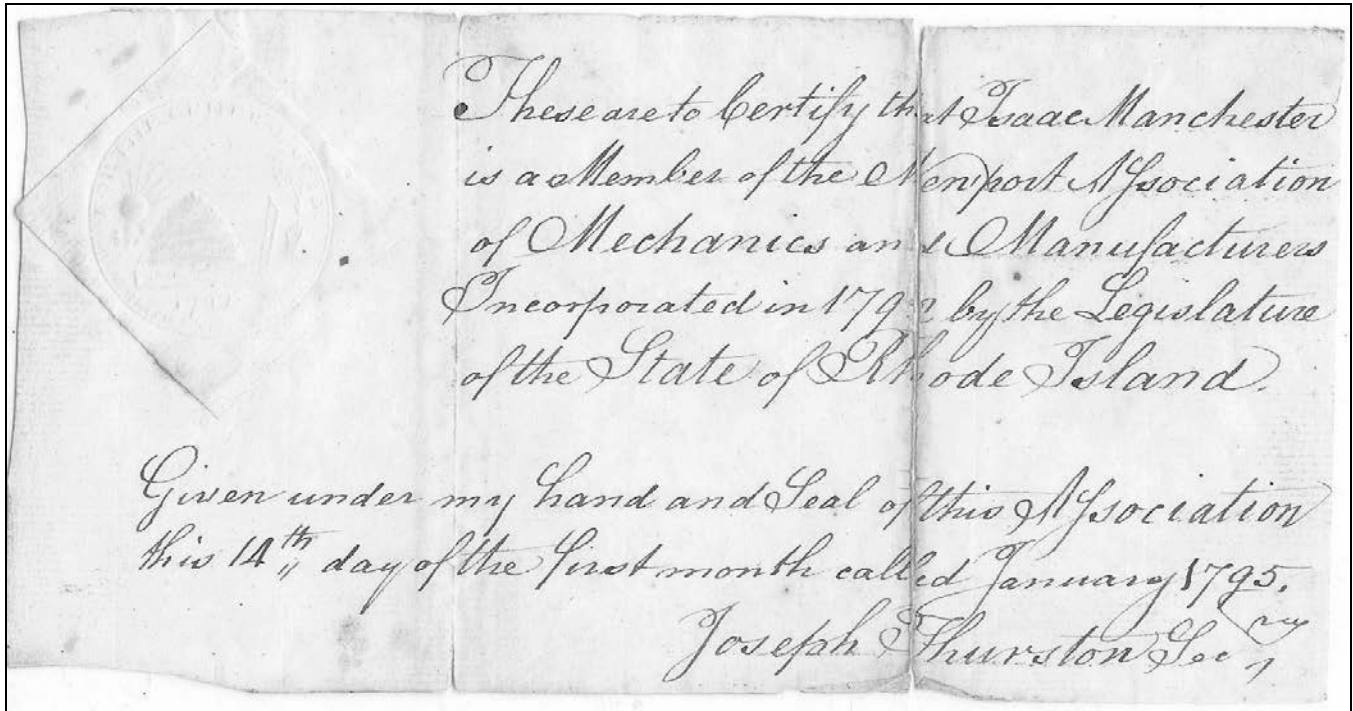 These are to Certify that Isaac Manchester
is a Member of the Newport Association
of Mechanics and Manufacturers
Incorporated in 1792 by the Legislature
of the State of Rhode Island.
Given under my hand and Seal of this Association
this 14th day of the first month called January 1795.
Joseph Thurston Secry